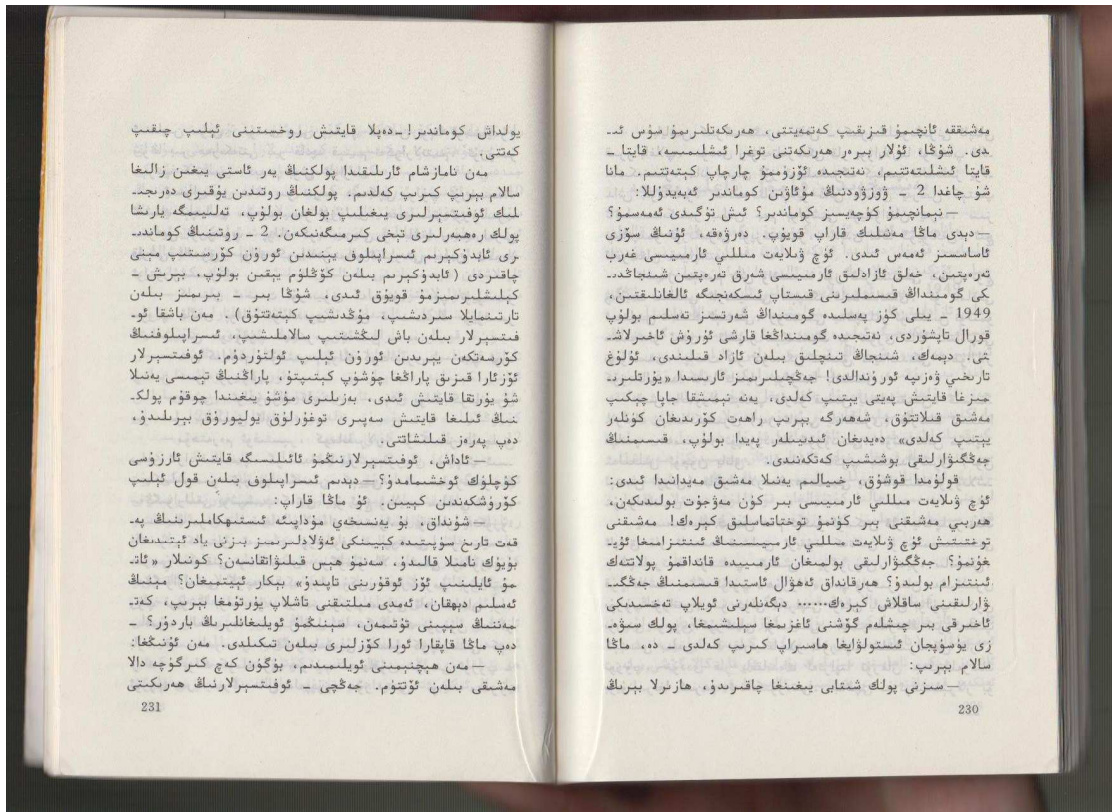 مەشىققە ئانچىمۇ قىزىقىپ كەتمەيتتى، ھەرىكەتلىرىمۇ سۇس ئىـ
دى. شۇڭا، ئۇلار بىرەر ھەرىكەتنى توغرا ئىشلىمىسە، قايتا ـ
قايتا ئىشلىتەتتىم، نەتىجىدە ئۆزۈممۇ چارچاپ كېتەتتىم. مانا
شۇ چاغدا 2 ـ ۋوزۋودنىڭ مۇئاۋىن كوماندىر ئەبەيدۇللا:
— نېمانچىمۇ كۈچەيسىز كوماندىر؟ ئىش تۈگىدى ئەمەسمۇ؟
— دېدى ماڭا مەنىلىك قاراپ قويۇپ. دەرۋەقە، ئۇنىڭ سۆزى
ئاساسسىز ئەمەس ئىدى. ئۈچ ۋىلايەت مىللىي ئارمىيىسى غەرب
تەرەپتىن، خەلق ئازادلىق ئارمىيىسى شەرق تەرەپتىن شىنجاڭدىـ
كى گومىنداڭ قىسىملىرىنى قىستاپ ئىسكەنجىگە ئالغانلىقتىن،
1949 ـ يىلى كۈز پەسلىدە گومىنداڭ شەرتسىز تەسلىم بولۇپ
قورال تاپشۇردى، نەتىجىدە گومىنداڭغا قارشى ئۇرۇش ئاخىرلاشـ
تى. دېمەك، شىنجاڭ تىنچلىق بىلەن ئازاد قىلىندى، ئۇلۇغ
تارىخىي ۋەزىپە ئورۇندالدى! جەڭچىلىرىمىز ئارىسىدا «يۇرتلىرىـ
مىزغا قايتىش پەيتى يېتىپ كەلدى، يەنە نېمىشقا جاپا چېكىپ
مەشىق قىلاتتۇق، شەھەرگە بېرىپ راھەت كۆرىدىغان كۈنلەر
يېتىپ كەلدى» دەيدىغان ئىدىيىلەر پەيدا بولۇپ، قىسىمنىڭ
جەڭگىۋارلىقى بوشىشىپ كەتكەنىدى.
قولۇمدا قوشۇق، خىيالىم يەنىلا مەشىق مەيدانىدا ئىدى:
ئۈچ ۋىلايەت مىللىي ئارمىيىسى بىر كۈن مەۋجۇت بولىدىكەن،
ھەربىي مەشىقنى بىر كۈنمۇ توختاتماسلىق كېرەك! مەشىقنى
توختىتىش ئۈچ ۋىلايەت مىللىي ئارمىيىسىنىڭ ئىنتىزامىغا ئۇيـ
غۇنمۇ؟ جەڭگىۋارلىقى بولمىغان ئارمىيىدە قانداقمۇ پولاتتەك
ئىنتىزام بولىدۇ؟ ھەرقانداق ئەھۋال ئاستىدا قىسىمنىڭ جەڭگىـ
ۋارلىقىنى ساقلاش كېرەك...... دېگەنلەرنى ئويلاپ تەخسىدىكى
ئاخىرقى بىر چىشلەم گۆشنى ئاغزىمغا سېلىشىمغا، پولك سىۋەـ
زى يۈسۈپجان ئىستولوۋاياغا ھاسىراپ كىرىپ كەلدى ـ دە، ماڭا
سالام بېرىپ:
— سىزنى پولك شتابى يىغىنغا چاقىرىدۇ، ھازىرلا بېرىڭ
230
يولداش كوماندىر! ـ دەپلا قايتىش روخسىتىنى ئېلىپ چىقىپ
كەتتى.
مەن نامازشام ئارىلىقىدا پولكنىڭ يەر ئاستى يىغىن زالىغا
سالام بېرىپ كىرىپ كەلدىم. پولكنىڭ روتىدىن يۇقىرى دەرىجىـ
لىك ئوفىتسېرلىرى يىغىلىپ بولغان بولۇپ، تەلىيىمگە يارىشا
پولك رەھبەرلىرى تېخى كىرمىگەنىكەن. 2 ـ روتىنىڭ كوماندىـ
رى ئابدۇكېرىم ئىسراپىلوف يېنىدىن ئورۇن كۆرسىتىپ مېنى
چاقىردى (ئابدۇكېرىم بىلەن كۆڭلۈم يېقىن بولۇپ، بېرىش ـ
كېلىشلىرىمىزمۇ قويۇق ئىدى، شۇڭا بىر ـ بىرىمىز بىلەن
تارتىنمايلا سىردىشىپ، مۇڭدىشىپ كېتەتتۇق). مەن باشقا ئوـ
فىتسېرلار بىلەن باش لىڭشىتىپ سالاملىشىپ، ئىسراپىلوفنىڭ
كۆرسەتكەن يېرىدىن ئورۇن ئېلىپ ئولتۇردۇم. ئوفىتسېرلار
ئۆزئارا قىزىق پاراڭغا چۈشۈپ كېتىپتۇ، پاراڭنىڭ تېمىسى يەنىلا
شۇ يۇرتقا قايتىش ئىدى، بەزىلىرى مۇشۇ يىغىندا چوقۇم پولكـ
نىڭ ئىلىغا قايتىش سەپىرى توغرۇلۇق يوليورۇق بېرىلىدۇ،
دەپ پەرەز قىلىشاتتى.
— ئاداش، ئوفىتسېرلارنىڭمۇ ئائىلىسىگە قايتىش ئارزۇسى
كۈچلۈك ئوخشىمامدۇ؟ — دېدىم ئىسراپىلوف بىلەن قول ئېلىپ
كۆرۈشكەندىن كېيىن. ئۇ ماڭا قاراپ:
— شۇنداق، بۇ يەنسىخەي مۇداپىئە ئىستىھكاملىرىنىڭ پەـ
قەت تارىخ سۈپىتىدە كېيىنكى ئەۋلادلىرىمىز بىزنى ياد ئېتىدىغان
بۈيۈك نامىلا قالىدۇ، سەنمۇ ھېس قىلىۋاتقانسەن؟ كونىلار «ئاتـ
مۇ ئايلىنىپ ئۆز ئوقۇرىنى تاپىدۇ» بىكار ئېيتمىغان؟ مېنىڭ
ئەسلىم دېھقان، ئەمدى مىلتىقنى تاشلاپ يۇرتۇمغا بېرىپ، كەتـ
مەننىڭ سېپىنى تۇتىمەن، سېنىڭمۇ ئويلىغانلىرىڭ باردۇر؟ ـ
دەپ ماڭا قاپقارا ئورا كۆزلىرى بىلەن تىكىلدى. مەن ئۇنىڭغا:
— مەن ھېچنېمىنى ئويلىمىدىم، بۈگۈن كەچ كىرگۈچە دالا
مەشىقى بىلەن ئۆتتۈم. جەڭچى ـ ئوفىتسېرلارنىڭ ھەرىكىتى
231